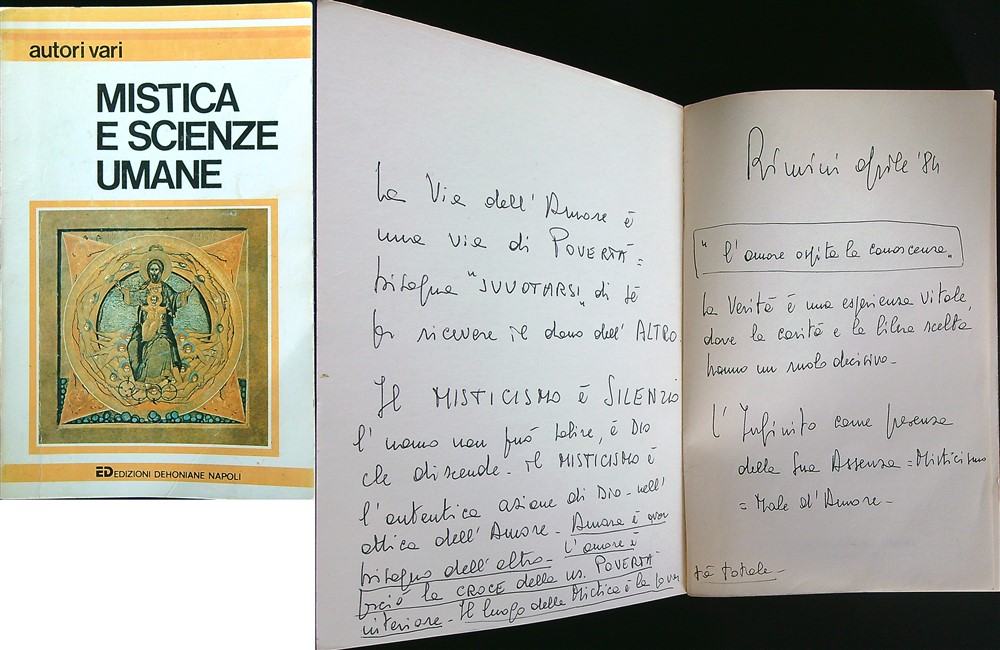 autori vari
MISTICA
E SCIENZE
UMANE
ED EDIZIONI DEHONIANE NAPOLI
La Via dell'Amore è
una via di POVERTÀ =
bisogna "SVUOTARSI" di sé
per ricevere il dono dell'ALTRO.
Il MISTICISMO è SILENZIO
l'uomo non può salire, è DIO
che discende - il MISTICISMO è
l'autentica azione di DIO - nell'
ottica dell'Amore - Amare è aver
bisogno dell'altro - L'amore è
perciò la CROCE della ns. POVERTÀ
interiore - Il luogo della Mistica è la pover
Rimini aprile '84
"l'amore ospita la conoscenza"
La Verità è una esperienza vitale,
dove la carità e la libera scelta
hanno un ruolo decisivo -
L'Infinito come presenza
della Sua Assenza = Misticismo
= Male d'Amore -
tà totale -